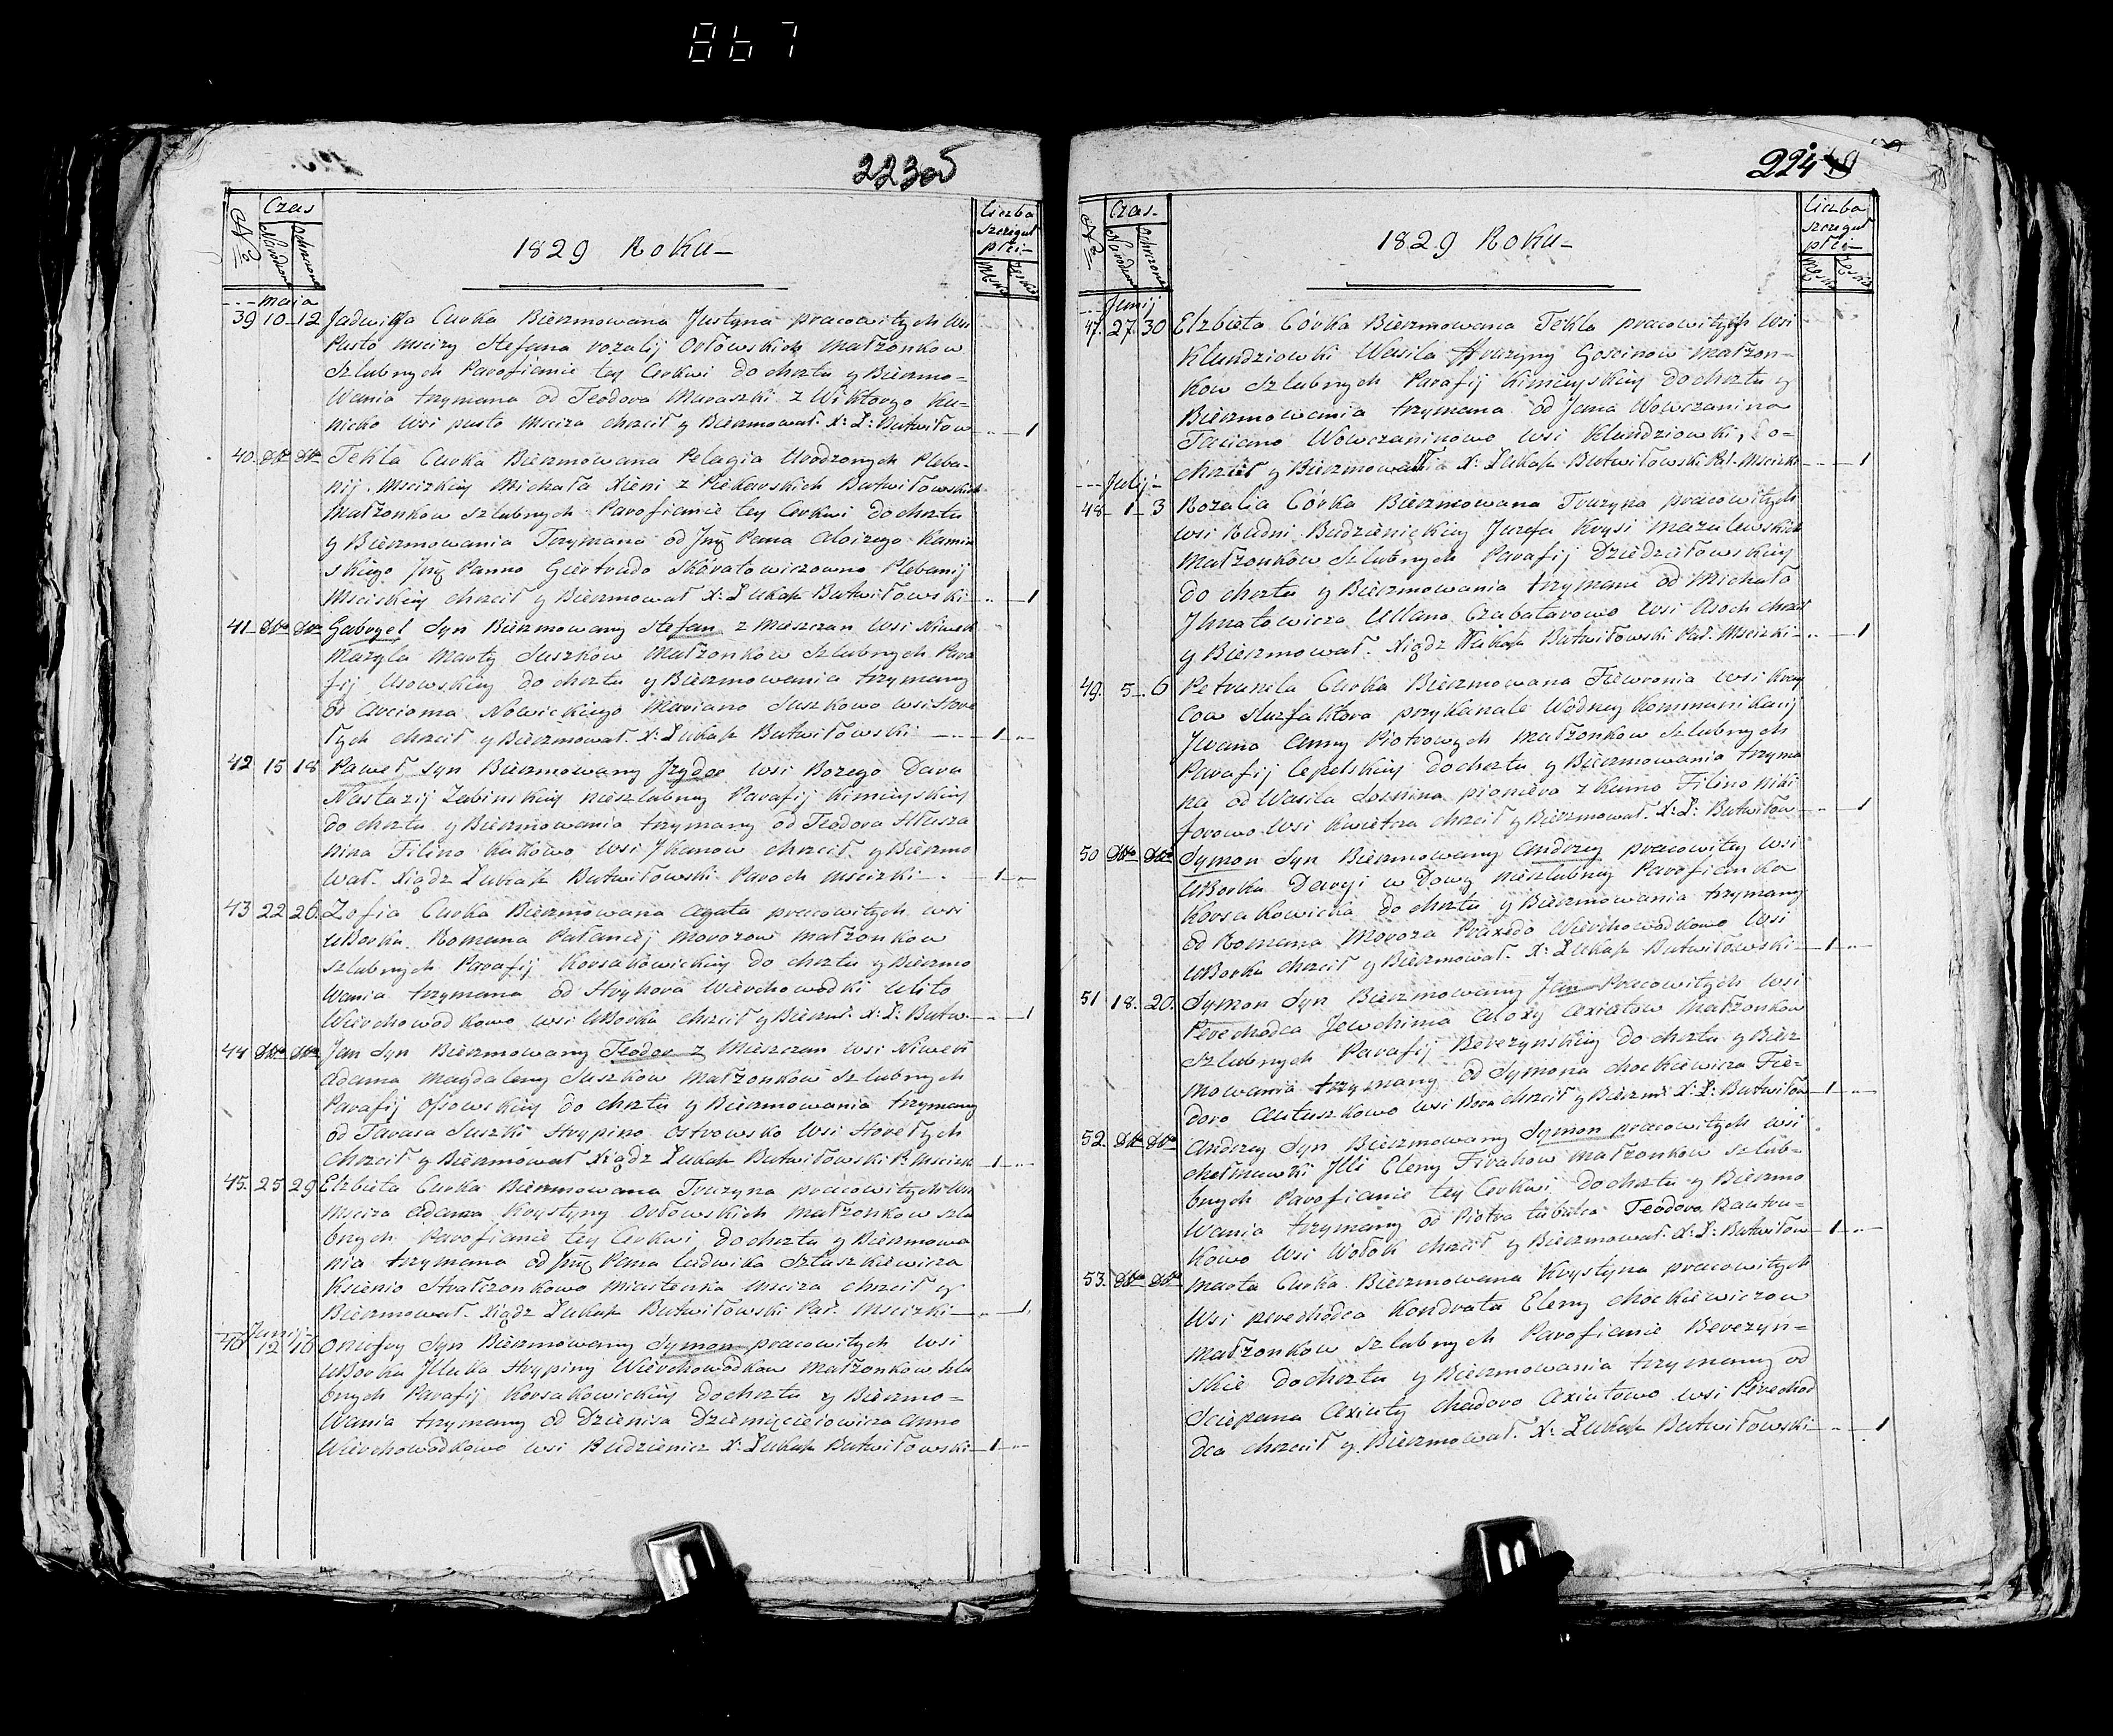 867
223
Czas
Liczba
szczegul
płci
№
Narodzenia
Ochrzczenia
1829 Roku
maia
39 10 12 Jadwiga Curka Bierzmowana Justyna pracowitych wsi
Pusto mscizy Stefana rozalij Orłowskich małżonkow
szlubnych Parofianie tey Cerkwi do chrztu y Bierzmo=
wania trzymana od Teodora Muraszki z Wiktoryo Ku=
nicko wsi pusto msciza chrzcił y Bierzmował. X: Ł: Butwiłow 1
40. dtto dtto Tekla Curka Bierzmowana Pelagia Urodzonych Pleba=
nij Mscizkiey Michała Xieni z Piekarskich Butwiłowskich
małżonkow szlubnych Parofianie tey Cerkwi do chrztu
y Bierzmowania Trzymana od Jmę Pana Aloizego Kamin
skiego Jmę Panno Giertrudo Skoratowiczowno Plebanij
Msciskiey chrzcił y Bierzmował X: Łukasz Butwiłowski 1
41 dtto dtto Gabryel Syn Bierzmowany Stefan z Mieszczan wsi Niwek
Maryla Marty Suszkow Małżonkow Szlubnych Para
fij Usowskiey do chrztu y Bierzmowania trzymany
od Arcioma Nowickiego Mariano Suszkowo wsi Hore
łych chrzcił y Bierzmował. X: Łukasz Butwiłowski 1
42 15 18 Paweł Syn Bierzmowany Jzydor wsi Bozego Daru
Nastazij Zabinskiey nieszlubney Parafij Kimieyskiey
do chrztu y Bierzmowania trzymany od Teodora Hłusza
nina Filino Kutkowo wsi Jkanow chrzcił y Bierzmo
wał. Xiądz Łukasz Butwiłowski Paroch Mscizki 1
43 22 26. Zofia Curka Bierzmowana Agata pracowitych wsi
UBorka Romana Pałanieij Morozow małżonkow
szlubnych Parafij Korsakowickiey do chrztu y Bierzmo
wania trzymana od Hryhora Wierchowodki Ulito
Wierchowodkowo wsi UBorka chrzcił y Bierzm. X: Ł: Butw. 1
44 dtto dtto Jan Syn Bierzmowany Teodor z Mieszczan wsi Niwek
Adama Magdaleny Suszkow Małżonkow Szlubnych
Parafij Ossowskiey do chrztu y Bierzmowania trzymany
od Tarasa Suszki Hrypino Ostrowsko wsi Horełych
Chrzcił y Bierzmował Xiądz Łukasz Butwiłowski P. Mscizki 1
45. 25 29 Elzbieta Curka Bierzmowana Truzyna pracowitych wsi
Msciza Adama Krystyny Orłowskich małżonkow szlu
bnych Parofianie tey Cerkwi do chrztu y Bierzmowa
nia trzymana od Jmę Pana Ludwika Sztuszkiewicza
Ksienio Hratzonkowo miasteczka Msciza chrzcił y
Bierzmował. Xiądz Łukasz Butwiłowski Par. Mscizki 1
Junij
46 12 16 Onufry Syn Bierzmowany Symon pracowitych wsi
UBorka Jlluka Hrypiny Wierchowodkow małżonkow szlu
bnych Parafij Korsakowickiey do chrztu y Bierzmo=
wania trzymany od Dzienisa Dziemięcieiowicza Anno
Wierchowodkowo wsi Budzienicz X: Łukasz Butwiłowski 1
224
Czas
Liczba
szczegul
płci
№
Narodzenia
Ochrzczenia
1829 Roku
Junij
47. 27 30 Elzbieta Córka Bierzmowana Tekla pracowitych wsi
Klundziowki Wasila Hruzyny Goscinow małżon=
kow szlubnych Parafij Kimieyskiey do chrztu y
Bierzmowania trzymana od Jana Wowczanina
Taciano Wowczaninowo wsi Klundziowki,
chrzcił y Bierzmował X: Łukasz Butwiłowski Par. Mscizki 1
Julij
48 1 3 Rozalia Córka Bierzmowana Truzyna pracowitych
wsi Rudni Budzienickiey Jurefa Krysi Mazalewskich
małżonkow szlubnych Parafij Dziedziłowskiey
do chrztu y Bierzmowania trzymana od Michała
Jhnatowicza Ullano Czabatarowo wsi Asoch chrzcił
y Bierzmował. Xiądz Łukasz Butwiłowski Par. Mscizki 1
49. 5 6 Petrunela Curka Bierzmowana Fiewronia wsi Kray
Coa sluzfaktora przy kanale Wodney Kommunikacij
Jwana Anny Piotrowych Małżonkow Szlubnych
Parafij Lepelskiey do chrztu y Bierzmowania trzyma
na od Wasila Soznina pioniera z kumo Filino Niki
forowo wsi Kwietcza chrzcił y Bierzmował. X: Ł: Butwiłow 1
50 dtto dtto Symon Syn Bierzmowany Andrzey pracowitey wsi
UBorka Daryi wDowy nieszlubney Parofianka
Korsakowicka do chrztu y Bierzmowania trzymany
od Romana Moroza Praxedo Wierchowodkowo wsi
UBorka chrzcił y Bierzmował. X: Łukasz Butwiłowski 1
51 18. 20. Symon Syn Bierzmowany Jan Pracowitych wsi
Perechodca Jewchima Aloxy Axiutow Małżonkow
szlubnych Parafij Berezynskiey do chrztu y Bierz
mowania trzymany od Symona Chockiewicza Fie=
doro Autuszkowo wsi Bora chrzcił y Bierzmo X: Ł: Butwiłow 1
52. dtto dtto Andrzey Syn Bierzmowany Symon pracowitych wsi
Chełmowki Jlli Eleny Firahow Małżonkow szlub=
bnych Parofianie tey Cerkwi do chrztu y Bierzmo
wania trzymany od Piotra Cubulca Teodoro Rautu=
kowo wsi Wołok chrzcił y Bierzmował. X: Ł: Butwiłow 1
53. dtto dtto Marta Curka Bierzmowana Krystyna pracowitych
wsi perechodca Kondrata Eleny Chockiewiczow
małżonkow szlubnych Parofianie Berezyn=
skie do chrztu y Bierzmowania trzymany od
Sciepana Axiuty Chadoro Axiutowo wsi Perechod
dca chrzcił y Bierzmował. X: Łukasz Butwiłowski 1